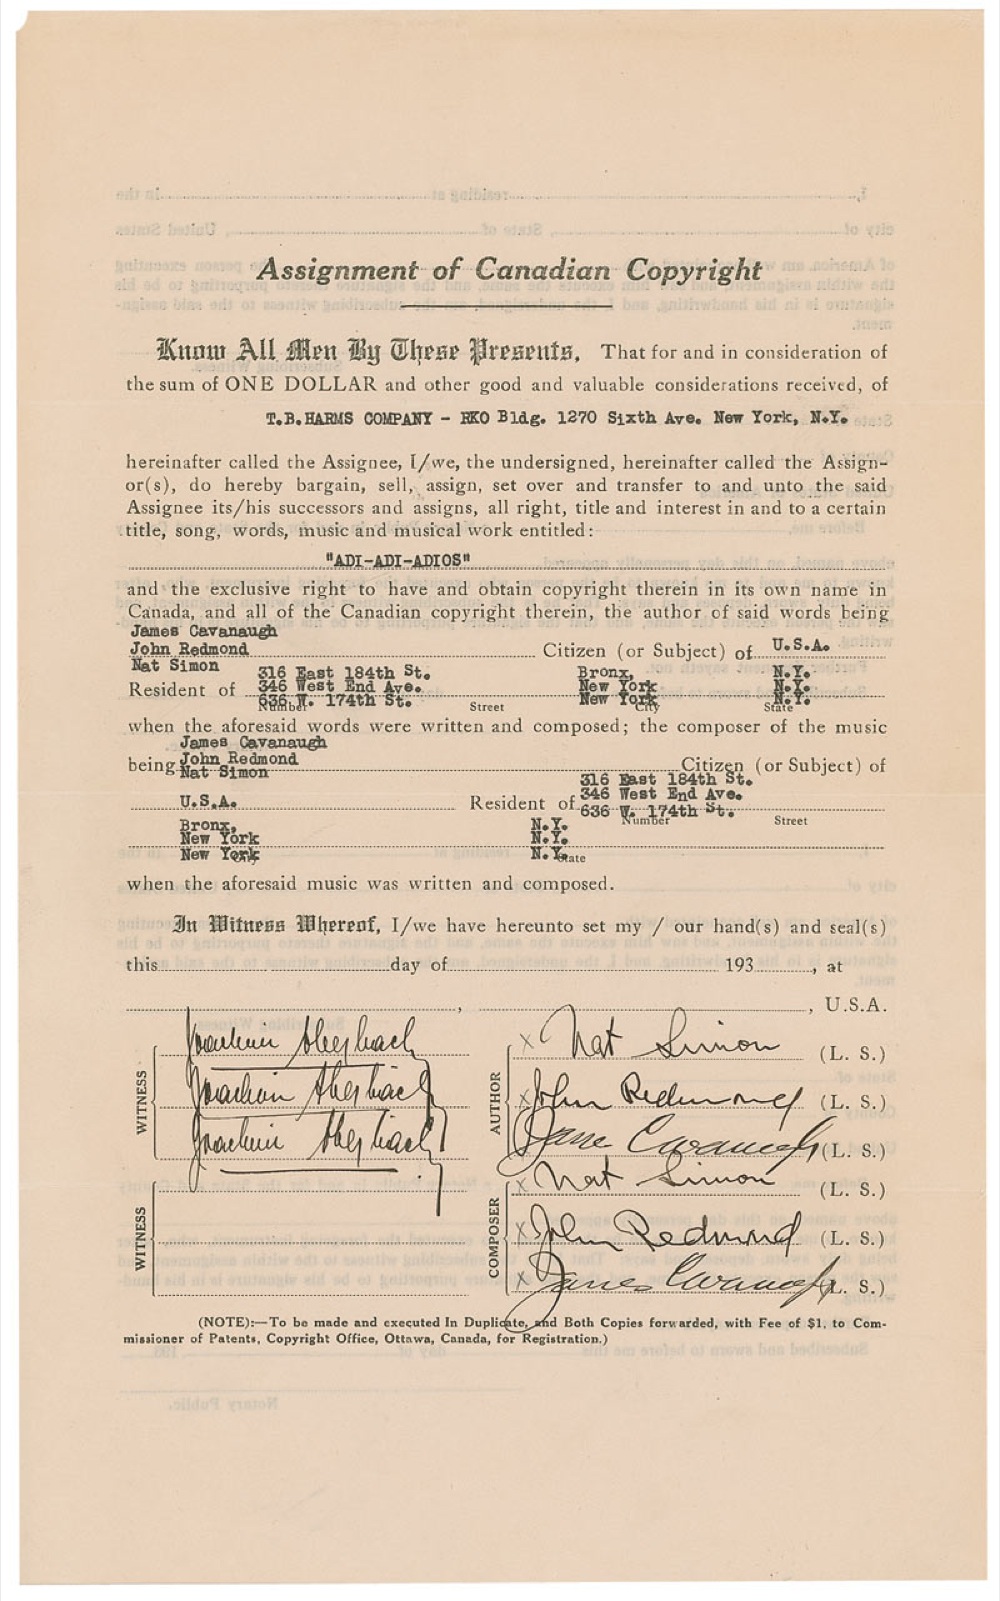 Assignment of Canadian Copyright
Know All Men By These Presents, That for and in consideration of
the sum of ONE DOLLAR and other good and valuable considerations received, of
T.B.HARMS COMPANY - RKO Bldg. 1270 Sixth Ave. New York, N.Y.
hereinafter called the Assignee, I/we, the undersigned, hereinafter called the Assign-
or(s), do hereby bargain, sell, assign, set over and transfer to and unto the said
Assignee its/his successors and assigns, all right, title and interest in and to a certain
title, song, words, music and musical work entitled:
"ADI-ADI-ADIOS"
and the exclusive right to have and obtain copyright therein in its own name in
Canada, and all of the Canadian copyright therein, the author of said words being
James Cavanaugh
John Redmond Citizen (or Subject) of U.S.A.
Nat Simon
316 East 184th St. Bronx, N.Y.
Resident of 346 West End Ave. New York N.Y.
636 W. 174th St. New York N.Y.
Number Street City State
when the aforesaid words were written and composed; the composer of the music
James Cavanaugh
being John Redmond Citizen (or Subject) of
Nat Simon
316 East 184th St.
U.S.A. Resident of 346 West End Ave.
636 W. 174th St.
Number Street
Bronx, N.Y.
New York N.Y.
New York N.Y.
City State
when the aforesaid music was written and composed.
In Witness Whereof, I/we have hereunto set my / our hand(s) and seal(s)
this day of 193 , at
, , U.S.A.
WITNESS
AUTHOR
x Nat Simon (L. S.)
x John Redmond (L. S.)
x James Cavanaugh (L. S.)
WITNESS
COMPOSER
x Nat Simon (L. S.)
x John Redmond (L. S.)
x James Cavanaugh (L. S.)
(NOTE):—To be made and executed In Duplicate, and Both Copies forwarded, with Fee of $1. to Com-
missioner of Patents, Copyright Office, Ottawa, Canada, for Registration.)